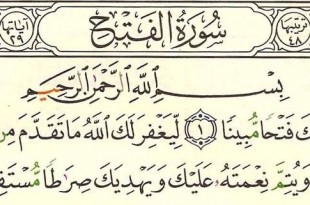 ترتيبها ٤٨ سُورَةُ الفَتْحِ آياتها ٢٩
بِسْمِ اللَّهِ الرَّحْمَٰنِ الرَّحِيمِ
كَ فَتْحًا مُّبِينًا ١ لِّيَغْفِرَ لَكَ اللَّهُ مَا تَقَدَّمَ مِن
وَيُتِمَّ نِعْمَتَهُ عَلَيْكَ وَيَهْدِيَكَ صِرَاطًا مُّسْتَقِ